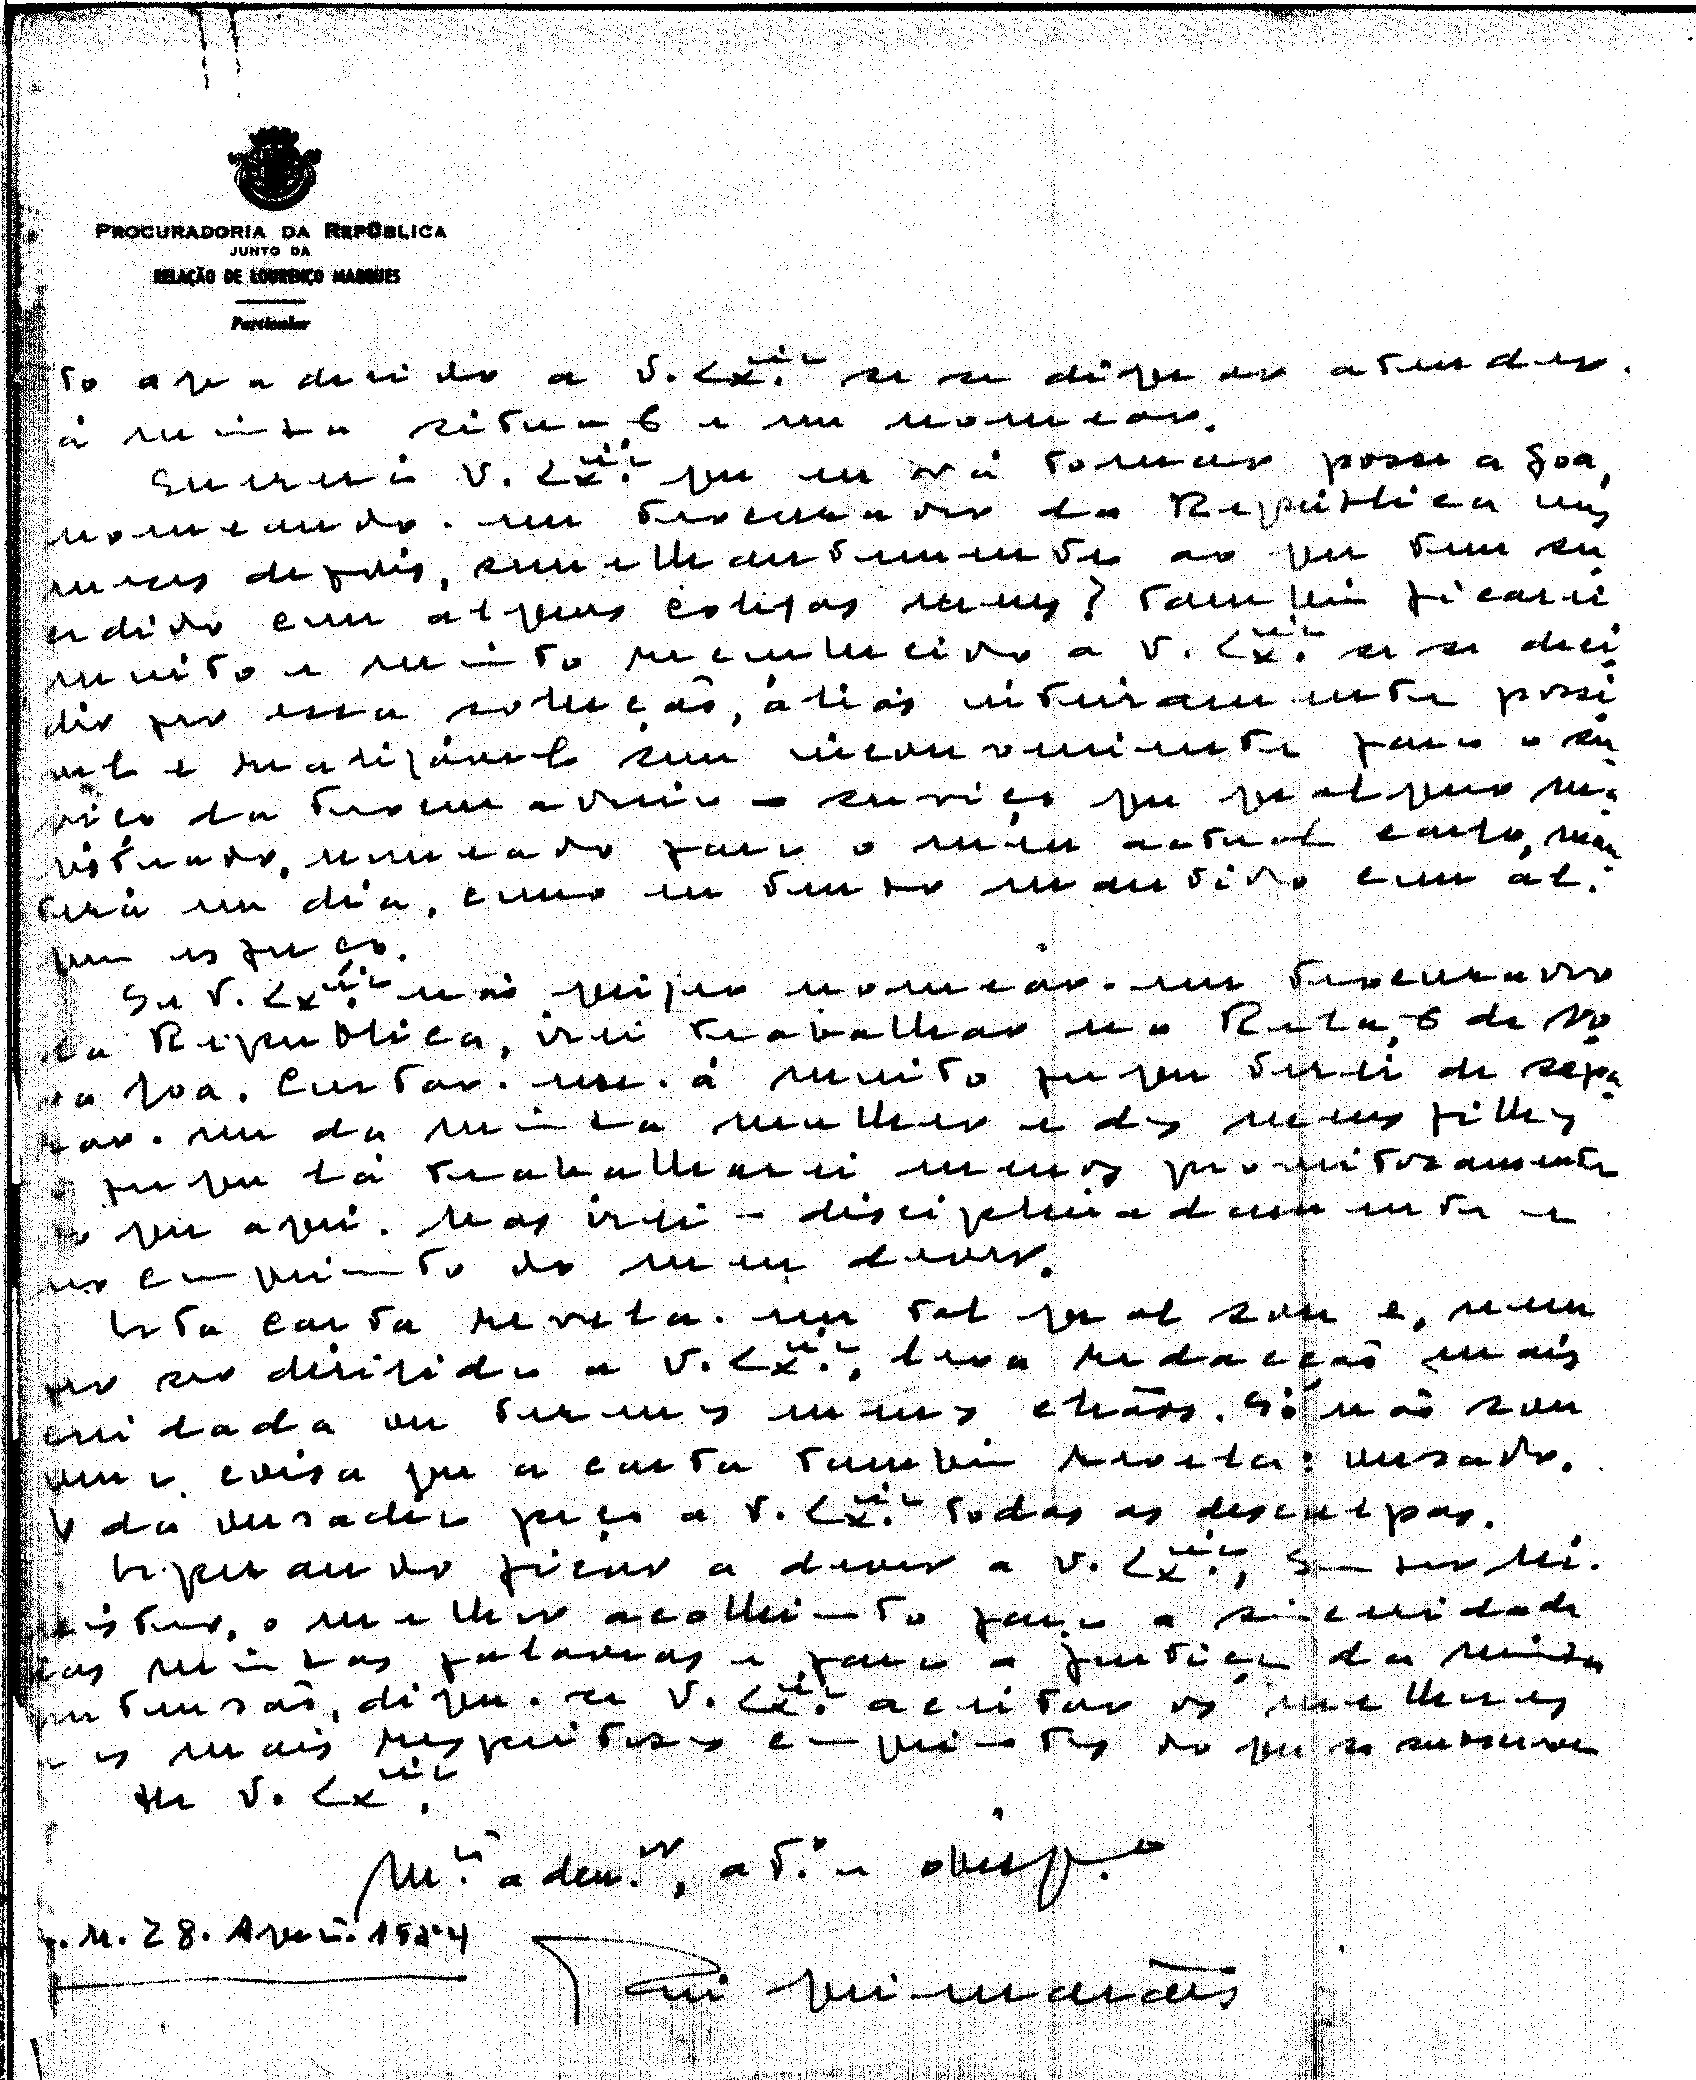 PROCURADORIA DA REPÚBLICA
JUNTO DA
RELAÇÃO DE LOURENÇO MARQUES
Particular
to agradecido a V. Exª. se se dignar atender
à minha situação e me nomear.
Quererá V. Exª. que eu vá tomar posse a Goa,
nomeando-me Procurador da República uns
meses depois, semelhantemente ao que tem su
cedido com alguns colegas meus? Também ficarei
muito e muito reconhecido a V. Exª. se se deci
dir por essa solução, aliás inteiramente possí
vel e realizável sem inconveniente para o ser
viço da Procuradoria – serviço que qualquer ma
gistrado, nomeado para o meu actual cargo, man
terá em dia, como eu tenho mantido com al-
gum esforço.
Se V. Exª. não quizer nomear-me Procurador
da República, irei trabalhar na Relação de No
va Goa. Custar-me-á muito porque terei de sepa
rar-me da minha mulher e dos meus filhos
e porque lá trabalharei menos proveitosamente
do que aqui. Mas irei – disciplinadamente e
no cumprimento do meu dever.
Esta carta revela-me tal qual sou e, nem
por ser dirigida a V. Exª., leva redacção mais
cuidada ou termos menos chãos. Só não sou
uma coisa que a carta também revela: ousado.
E da ousadia peço a V. Exª. todas as desculpas.
Esperando ficar a dever a V. Exª., Senhor Mi-
nistro, o melhor acolhimento para a sinceridade
das minhas palavras e para a justiça da minha
pretensão, digne-se V. Exª. aceitar os melhores
e os mais respeitosos cumprimentos do que se subscreve
de V. Exª.
Mtº. adm.or, atº. e obrigº.
L. M. 28. Agosto. 1954
Rui Guimarães